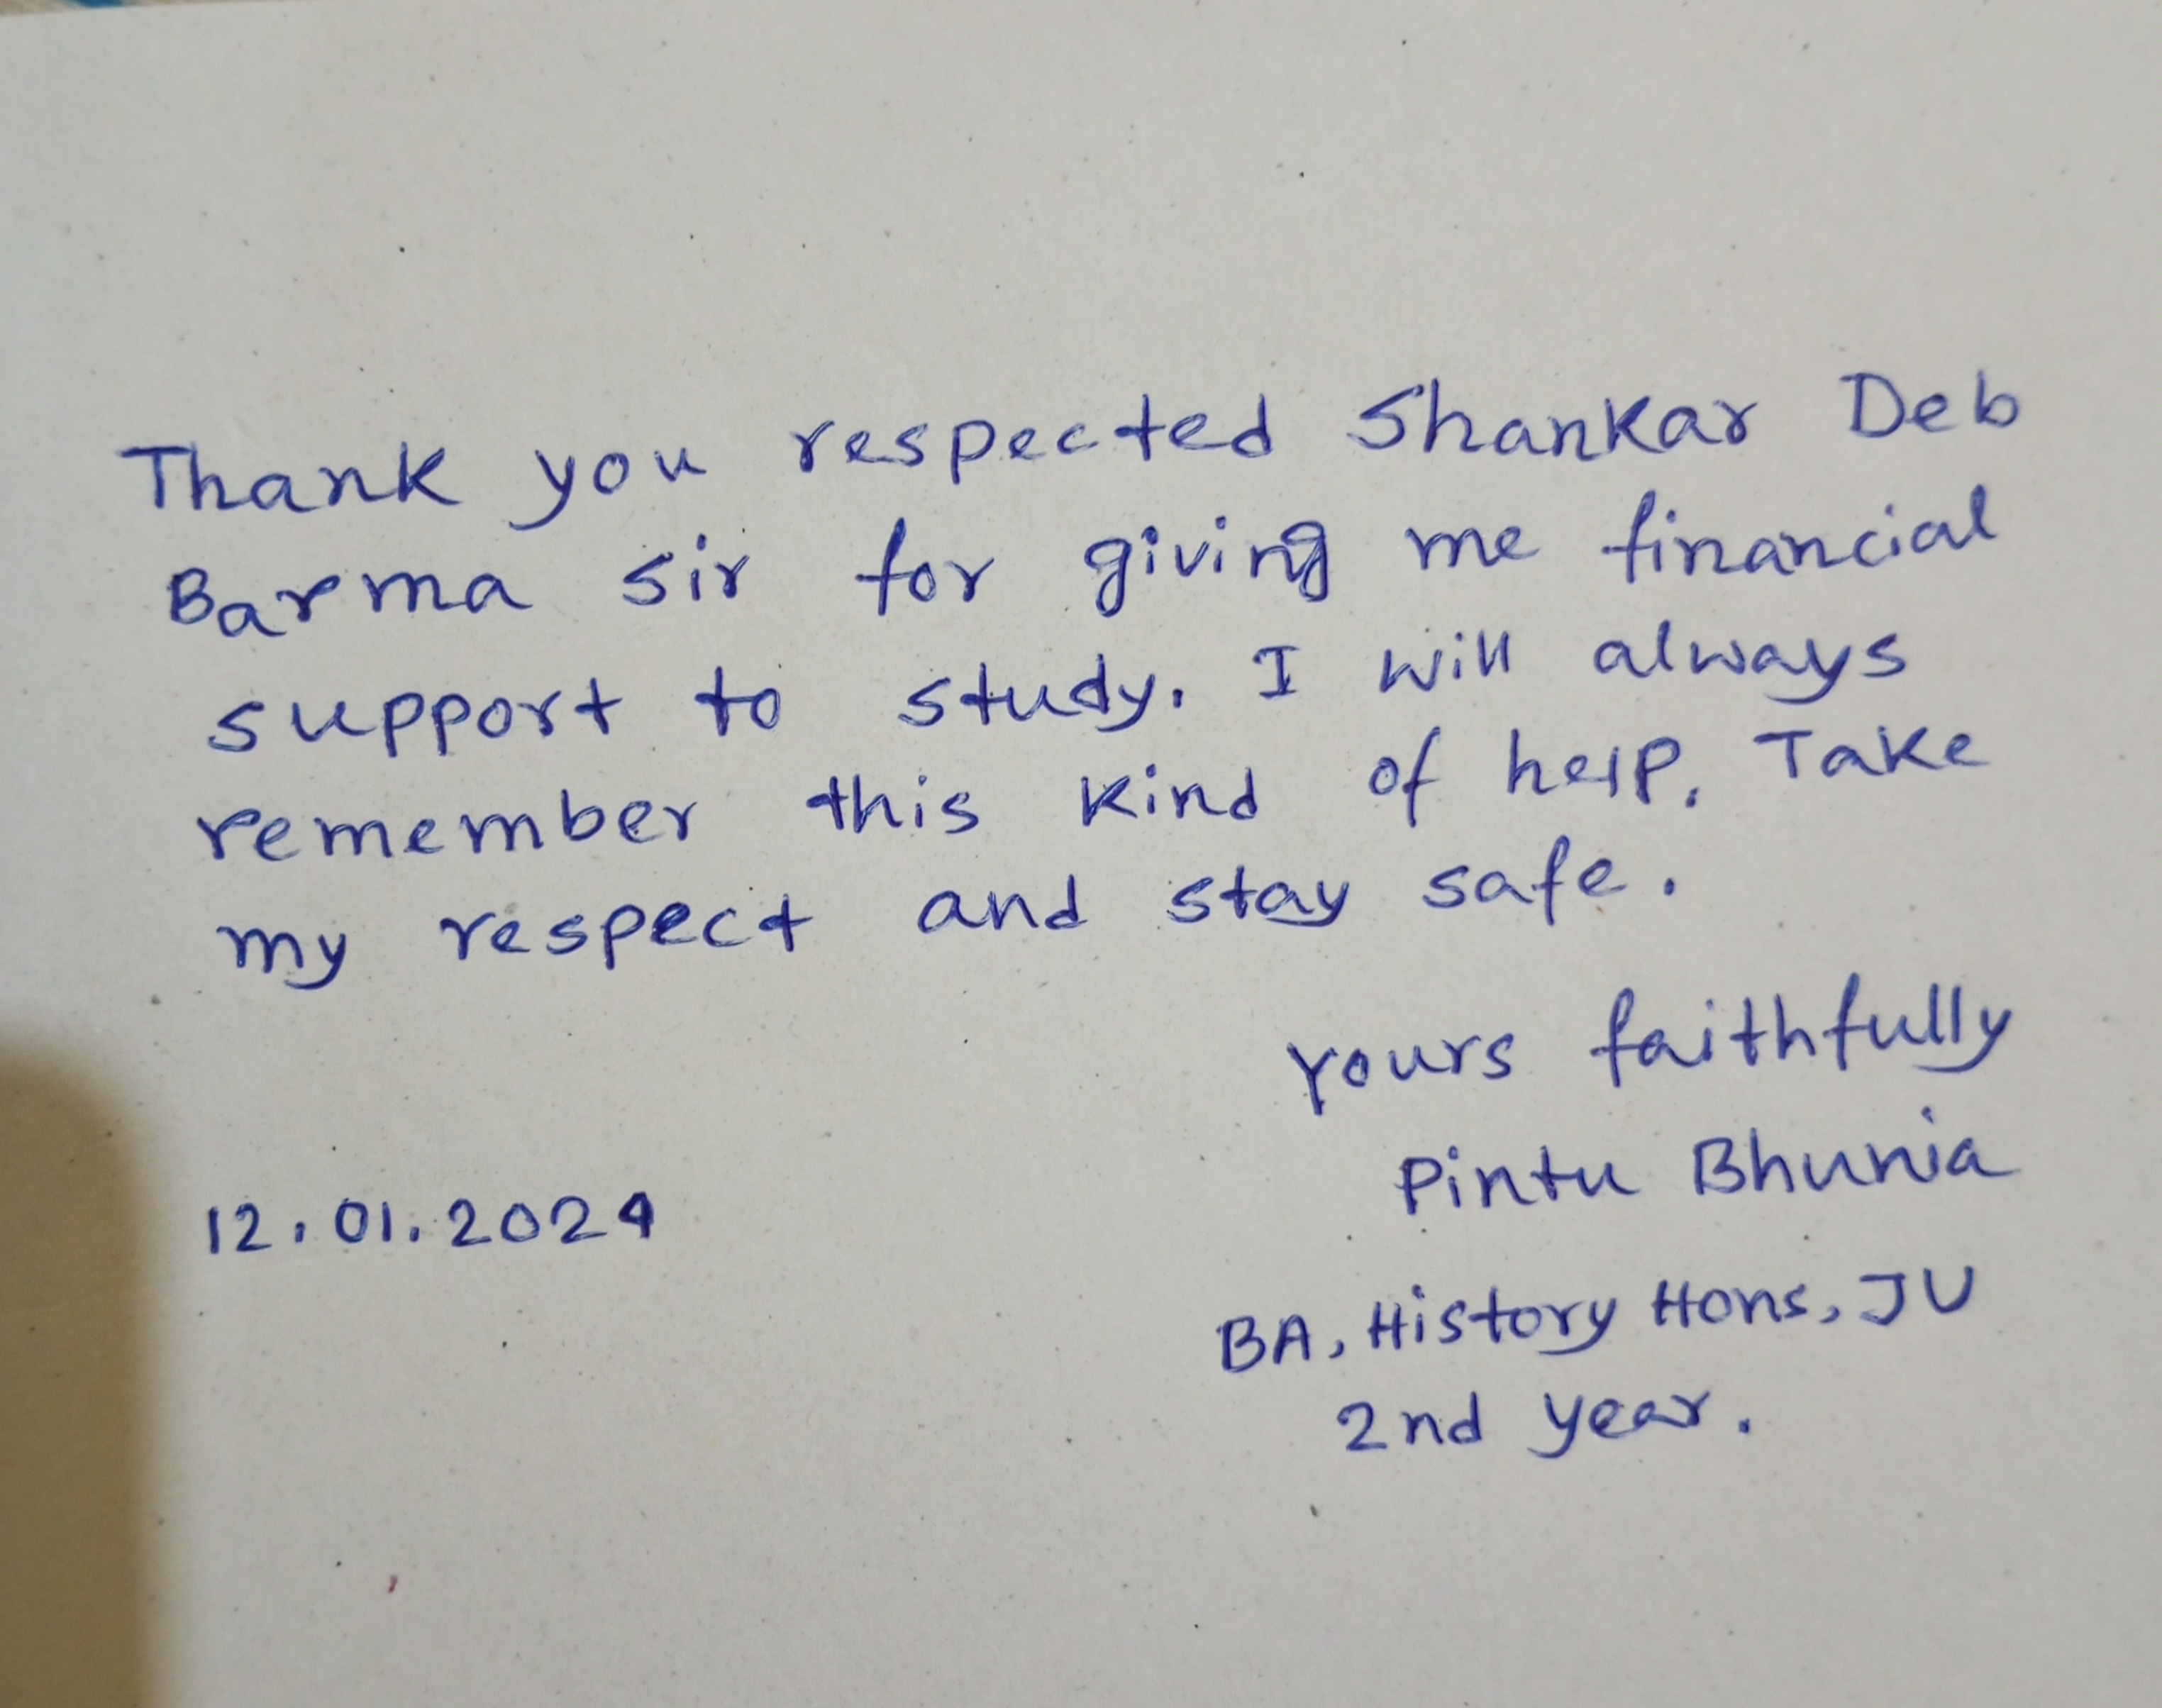 Thank you respected Shankar Deb
Barma sir for giving me financial
support to study. I will always
remember this kind of help. Take
my respect and stay safe.
Yours faithfully
Pintu Bhunia
12.01.2024
BA, History Hons, JU
2nd year.